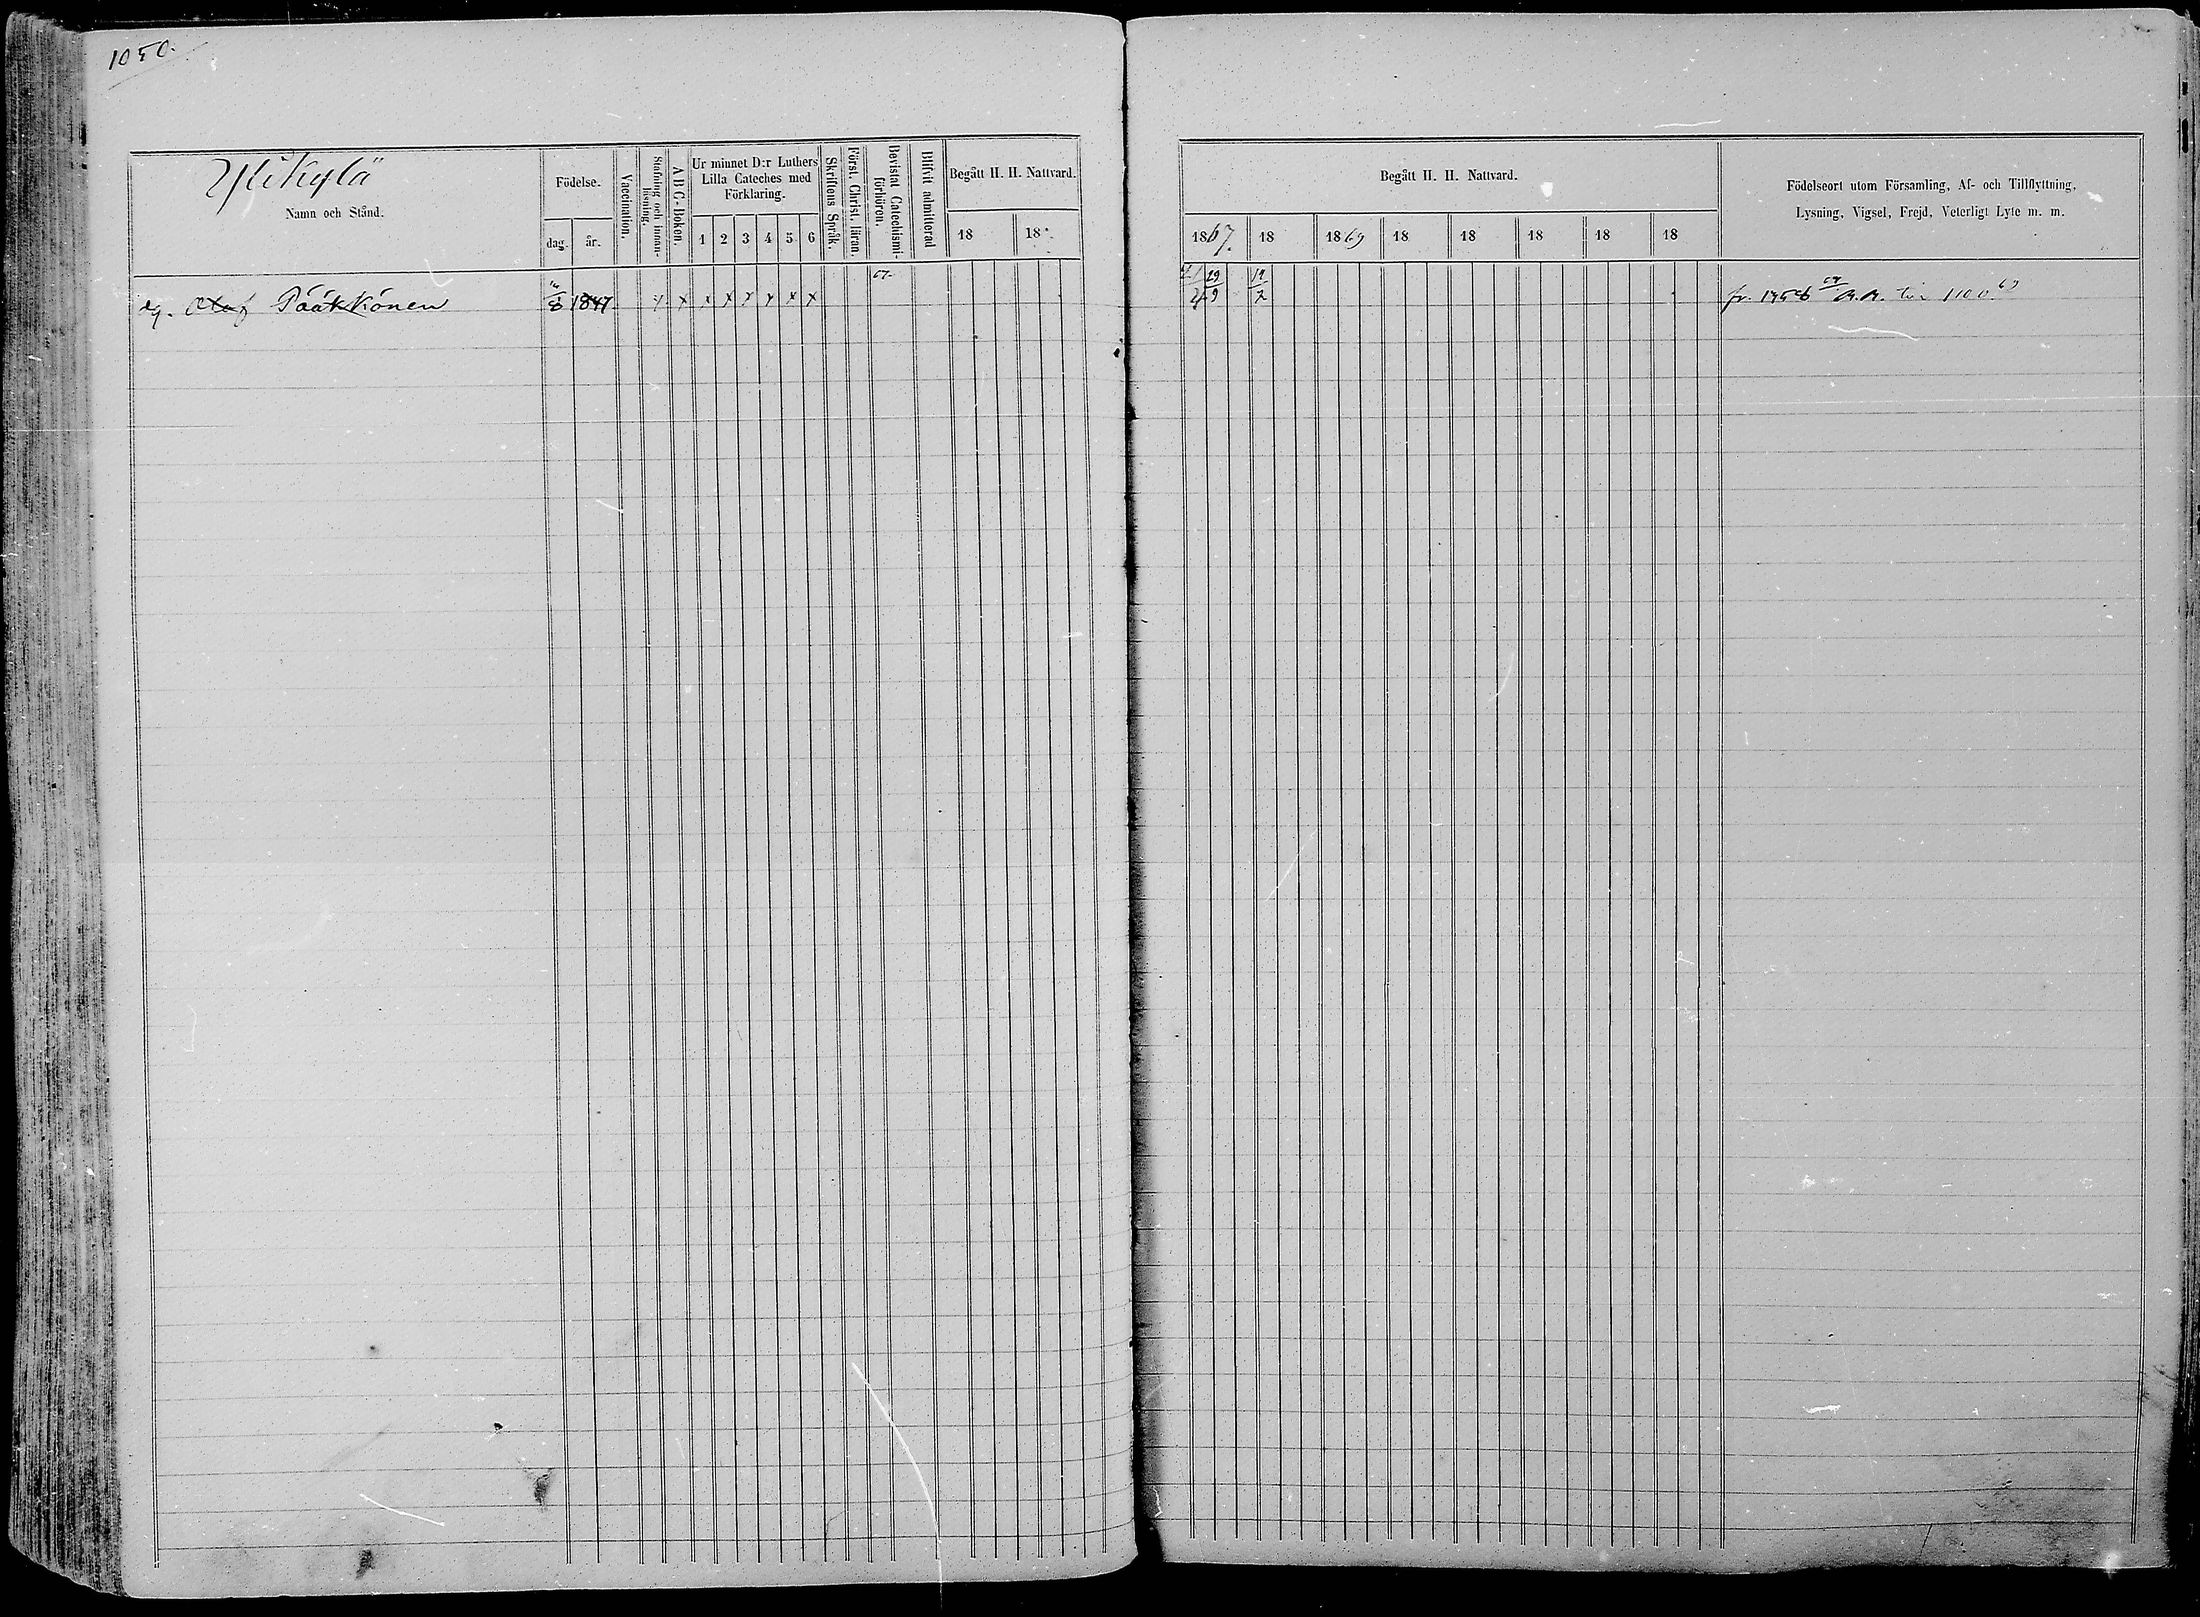 1050.
Ylikylä
Namn och Stånd.
Födelse.
dag.
år.
Vaccination.
Stafning och innan-läsning.
A B C-Boken.
Ur minnet D:r Luthers
Lilla Cateches med
Förklaring.
1 2 3 4 5 6
Skriftens Språk.
Först. Christ. läran.
Bevistat Catechismi-förhören.
Blifvit admitterad
Begått H. H. Nattvard.
18 18
dg. Olof Pääkkönen
8 1847 x x x x x x x x
67.
Begått H. H. Nattvard.
1867. 18 1869 18 18 18 18 18
29/9
Födelseort utom Församling, Af- och Tillflyttning,
Lysning, Vigsel, Frejd, Veterligt Lyte m. m.
fr. 1100. 69